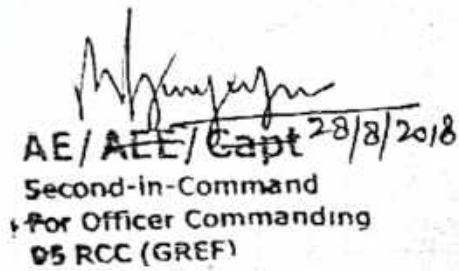 AE/AEE/Capt 28/8/2018
Second-in-Command
For Officer Commanding
95 RCC (GREF)